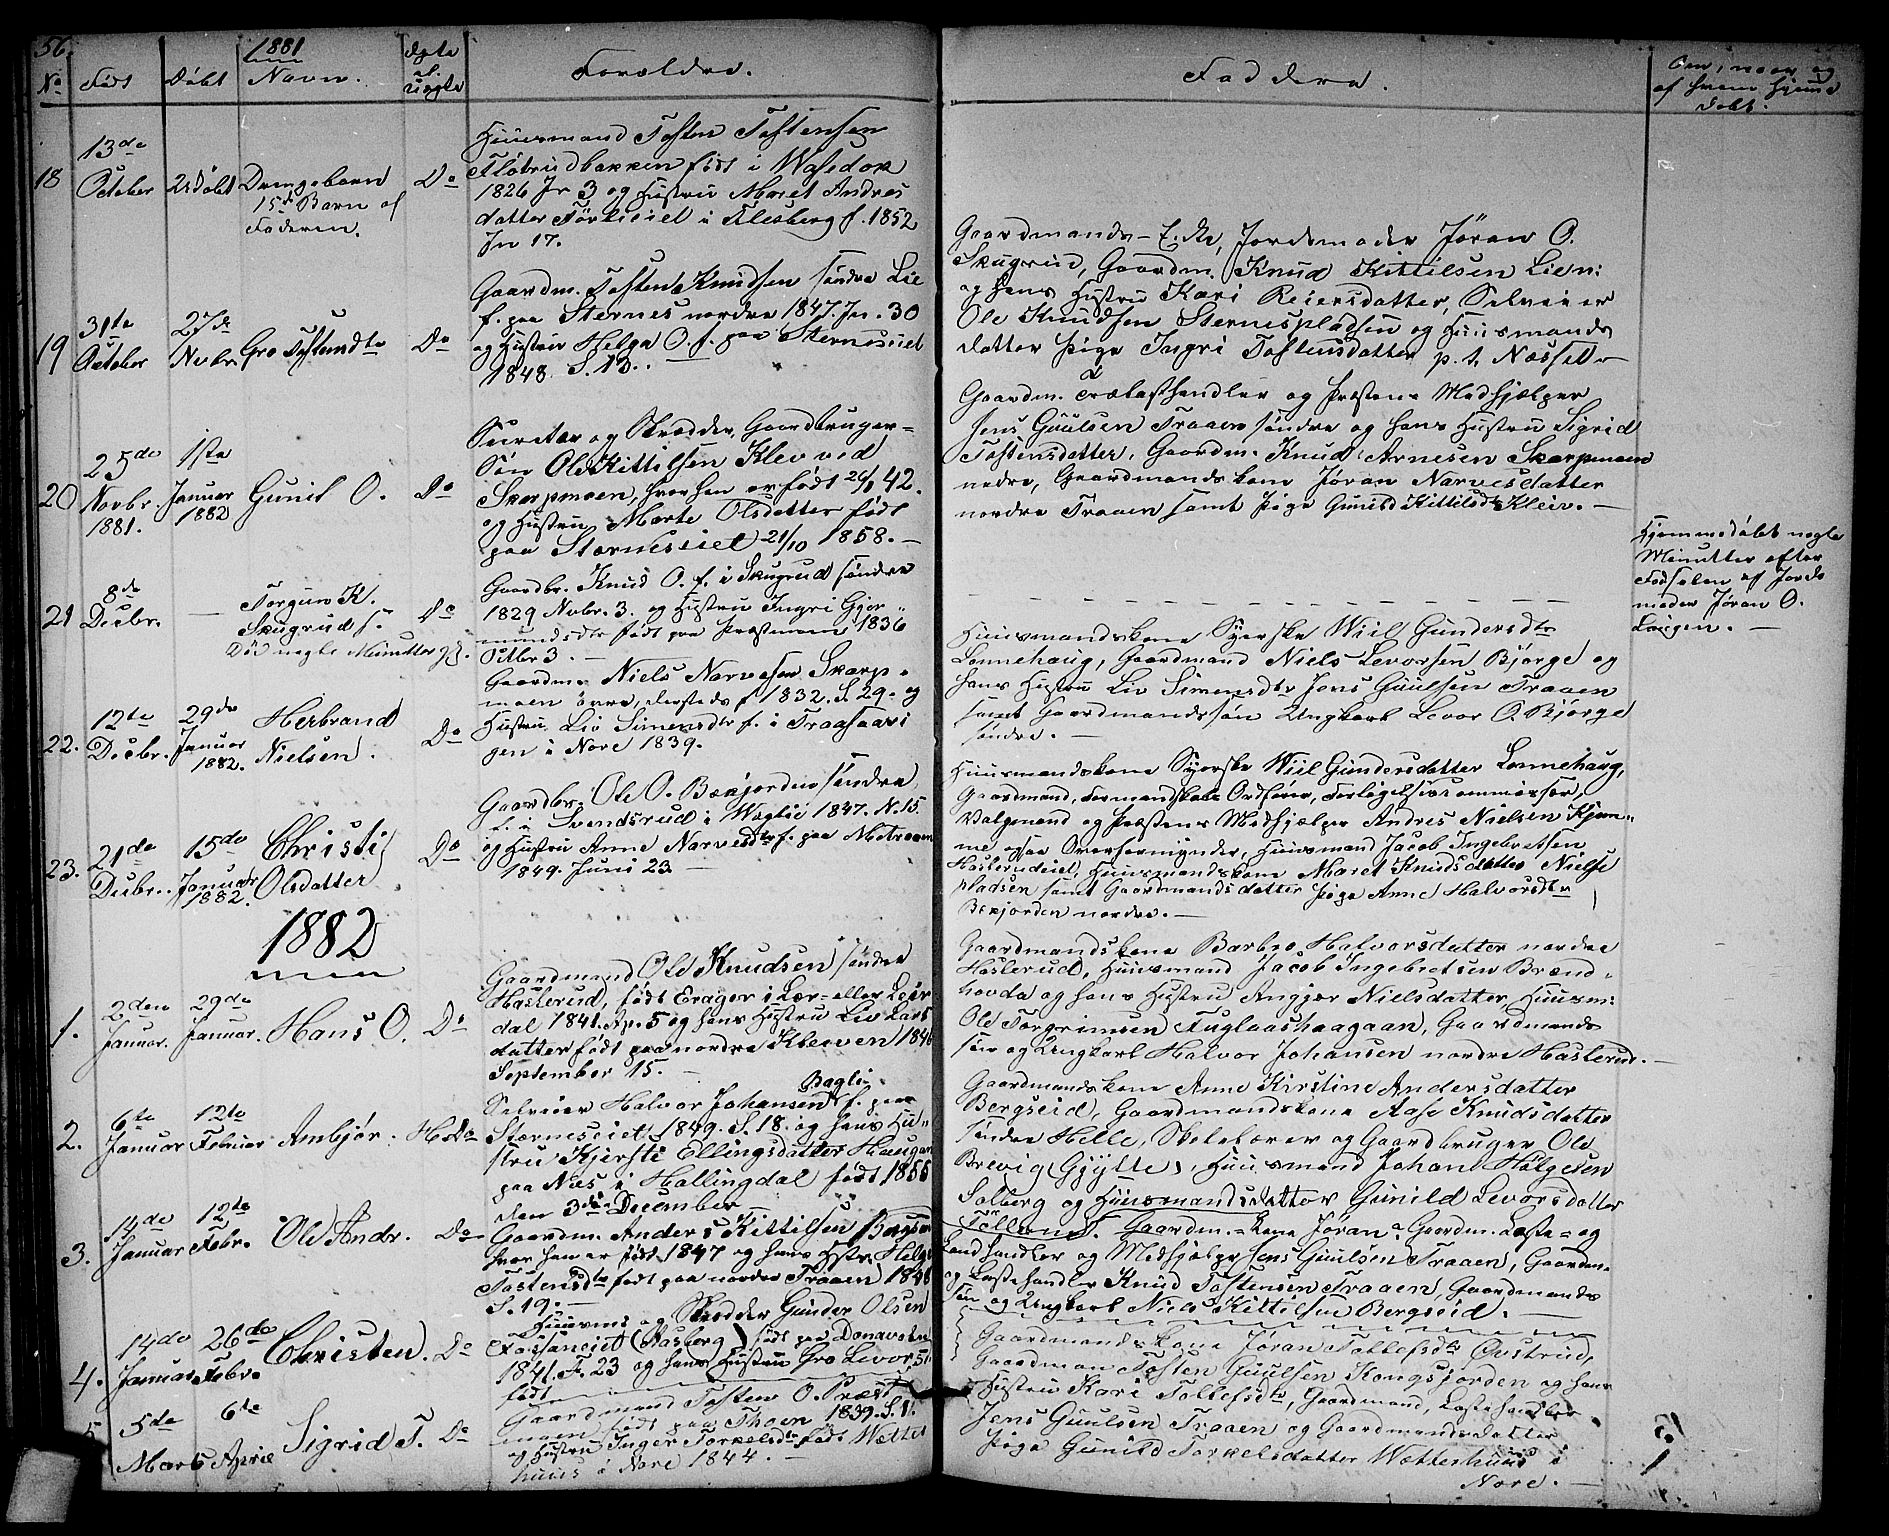 56.
1881
No Født Døbt Navn. Egte el. Uegte Forældre.
Faddere.
Om, naar og
af hvem hjemme
døbt.
18
13de
October
Udøbt
Drengebarn
15de Barn af
Faderen.
Do
Huusmand Tosten Tostensen
født i
1826 Jr 3 og Hustru Maret Andres
datter i Flesberg f. 1852
Jn 17.
19
31te
October
27de
Novbr.
Gro Tostensdtr
Do
Gaardm. Tosten Knudsen søndre Lie
f. paa Sternes nordre 1847. Jn. 30
og Hustru Helga O. f. paa Sterneseiet
1848. S. 13.
Gaardmands-E.ke, Jordemoder Jøran O.
Skugrud, Gaardm. Knud Kittilsen Lien:
og hans Hustru Kari Reiersdatter, Selveier
Ole Knudsen Sternespladsen og Huusmands
datter Pige Ingri Tostensdatter p. t. Næsset
20
25de
Novbr.
1881.
1ste
Januar
1882
Gunil O.
Do
og Skrædder, Gaardbruger-
Søn Ole Kittilsen Klev ved
Skarpmoen, hvor han er født 26/1 42.
og Hustru Marte Olsdatter født
paa Sterneseiet 21/10 1858.
Gaardm. Trælasthandler og Præstens Medhjælper
Jens Guulsen Traaen søndre og hans Hustru Sigrid
Tostensdatter, Gaardm. Knud Arnesen Skarpmoen
nedre, Gaardmandskone Jøran Narvesdatter
nordre Traaen samt Pige Gunild Kittilsdtr Kleiv.
21
8de
Decbr.
Torgun K.
Skugrud s.
Død nogle Minutter gl.
Do
Gaardbr. Knud O. f. i Skugrud søndre
1829 Novbr. 3. og Hustru Ingri Gjer
mundsdtr født paa Præstmoen 1836
Octbr 3.
Hjemmedøbt nogle
Minutter efter
Fødselen af Jorde
moder Jøran O.
22.
12te
Decbr.
29de
Januar
1882.
Herbrand
Nielsen.
Do
Gaardm. Niels Narvesen Skarp
moen øvre, dersteds f 1832. S. 29. og
Hustru Liv Simensdtr f. i
gen i Nore 1839.
Huusmandskone Syerske Wiil Gundersdtr
Lonnehaug, Gaardmand Niels Levorsen Bjørge og
hans Hustru Liv Simensdtr Jens Guulsen Traaen
samt Gaardmandssøn Ungkarl Levor O. Bjørge
søndre.
23.
21de
Decbr.
15de
Januar
1882.
Christi
Olsdatter
Do
Gaardbr. Ole O. Bekjorden søndre
f. i Svendsrud i Veglie 1847. N. 15
og Hustru Anne Narvesdtr f. paa Medtraaen
1849. Juni 23.
Huusmandskone Syerske Wiil Gundersdatter Lonnehaug,
Gaardmand, Formandskabs Ordfører, Forligelseskommissær,
Valgmand og Præstens Medhjælper Andres Nielsen Kjem-
me ogsaa Overformynder, Huusmand Jacob Ingebretsen
Hasleruudeiet, Huusmandskone Maret Knudsdatter Nielse
pladsen samt Gaardmandsdatter Pige Anne Halvorsdtr
Bekjorden nordre.
1882
1.
2den
Januar.
29de
Januar.
Hans O.
Do
Gaardmand Ole Knudsen søndre
Haslerud, født Erager i Lær- eller Leir
dal 1841. Ap. 5 og hans Hustru Liv Lars
datter født paa nordre Kleiven 1846
September 15.
Gaardmandskone Barbro Halvorsdatter nordre
Haslerud, Huusmand Jacob Ingebretsen Brænd-
hovda og hans Hustru Angjær Nielsdatter, Huusm:
Ole Torgrimsen Fuglaashaagaan, Gaardmands
søn og Ungkarl Halvor Johansen nordre Haslerud.
2.
6te
Januar
12te
Februar
Ambjør.
Do
Selveier Halvor Johansen Bagli f. paa
Sterneseiet 1849. S. 18. og hans Hu-
stru Kjersti Ellingsdatter Haugen
paa Næs i Hallingdal født 1855
den 3die December
Gaardmandskone Anne Kirstine Andersdatter
Bergseid, Gaardmandskone Aase Knudsdatter
søndre Helle, Skolelærer og Gaardbruger Ole
Brevig (Gjytte), Huusmand Johan Helgesen
Solberg og Huusmandsdatter Gunild Levorsdatter
3.
14de
Januar
12te
Febr.
Ole Andr.
Do
Gaardm. Anders Kittilsen Bergseid
hvor han er født 1847 og hans Hstr. Helge
Tostensdtr født paa nordre Traaen 1848
S. 19.
Gaardm.-kone Jøran Gaardm. Laste- og
Landhandler og Medhjælper Jens Guulsen Traaen, Gaardm.
og Lastehandler Knud Tostensen Traaen, Gaardmands
søn og Ungkarl Niels Kittelsen Bergseid.
4.
14de
Januar
26de
Febr.
Christen.
Do
Huusmd og Skrædder Gunder Olsen
(Aasberg) født paa
1841. F. 23 og hans Hustru Gro Levorsd
født
Gaardmandskone Jøran Tollefsdtr Øvstrud,
Gaardman Tosten Guulsen Kongsjorden og hans
Hustru Kari Tollefsdtr, Gaardmand, Lastehandler
Jens Guulsen Traaen og Gaardmandsdatter
Pige Gunild Torkelsdatter Wætterhuus i
Nore.
5
5de
Marts
6te
April
Sigrid T.
Do
Gaardmand Tosten O. Præst
moen født paa 1839. S. 1.
og Hustru Inger Torkelsdtr født Wætter
huus i Nore 1844.